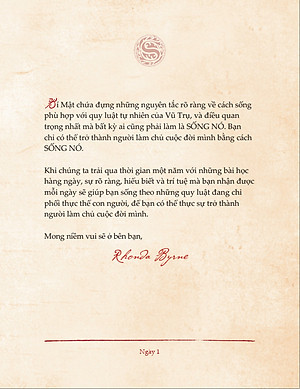 Bí Mật chứa đựng những nguyên tắc rõ ràng về cách sống
phù hợp với quy luật tự nhiên của Vũ Trụ, và điều quan
trọng nhất mà bất kỳ ai cũng phải làm là SỐNG NÓ. Bạn
chỉ có thể trở thành người làm chủ cuộc đời mình bằng cách
SỐNG NÓ.
Khi chúng ta trải qua thời gian một năm với những bài học
hàng ngày, sự rõ ràng, hiểu biết và trí tuệ mà bạn nhận được
mỗi ngày sẽ giúp bạn sống theo những quy luật đang chi
phối thế con người, để bạn có thể thực sự trở thành
người làm chủ cuộc đời mình.
Mong niềm vui sẽ ở bên bạn,
Rhonda Byrne
Ngày 1